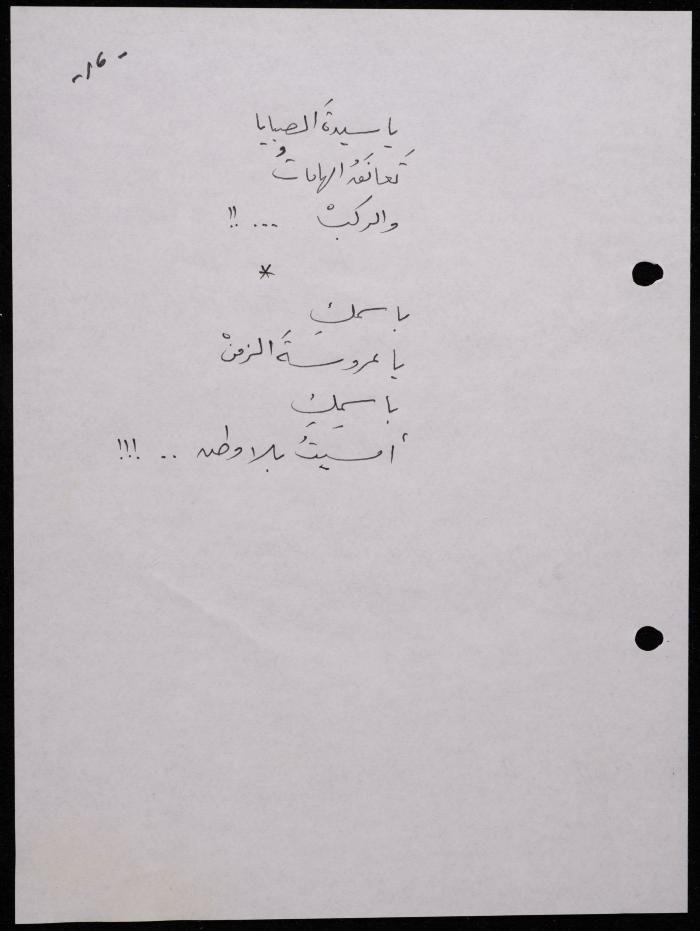 -١٦-
يا سيدةَ الصبايا
تَعانَقُ الهاماتُ
والركبْ ... !!
*
باسمكِ
يا عروسةَ الزمنْ
باسمِكِ
أمسيتُ بلا وطن .. !!!